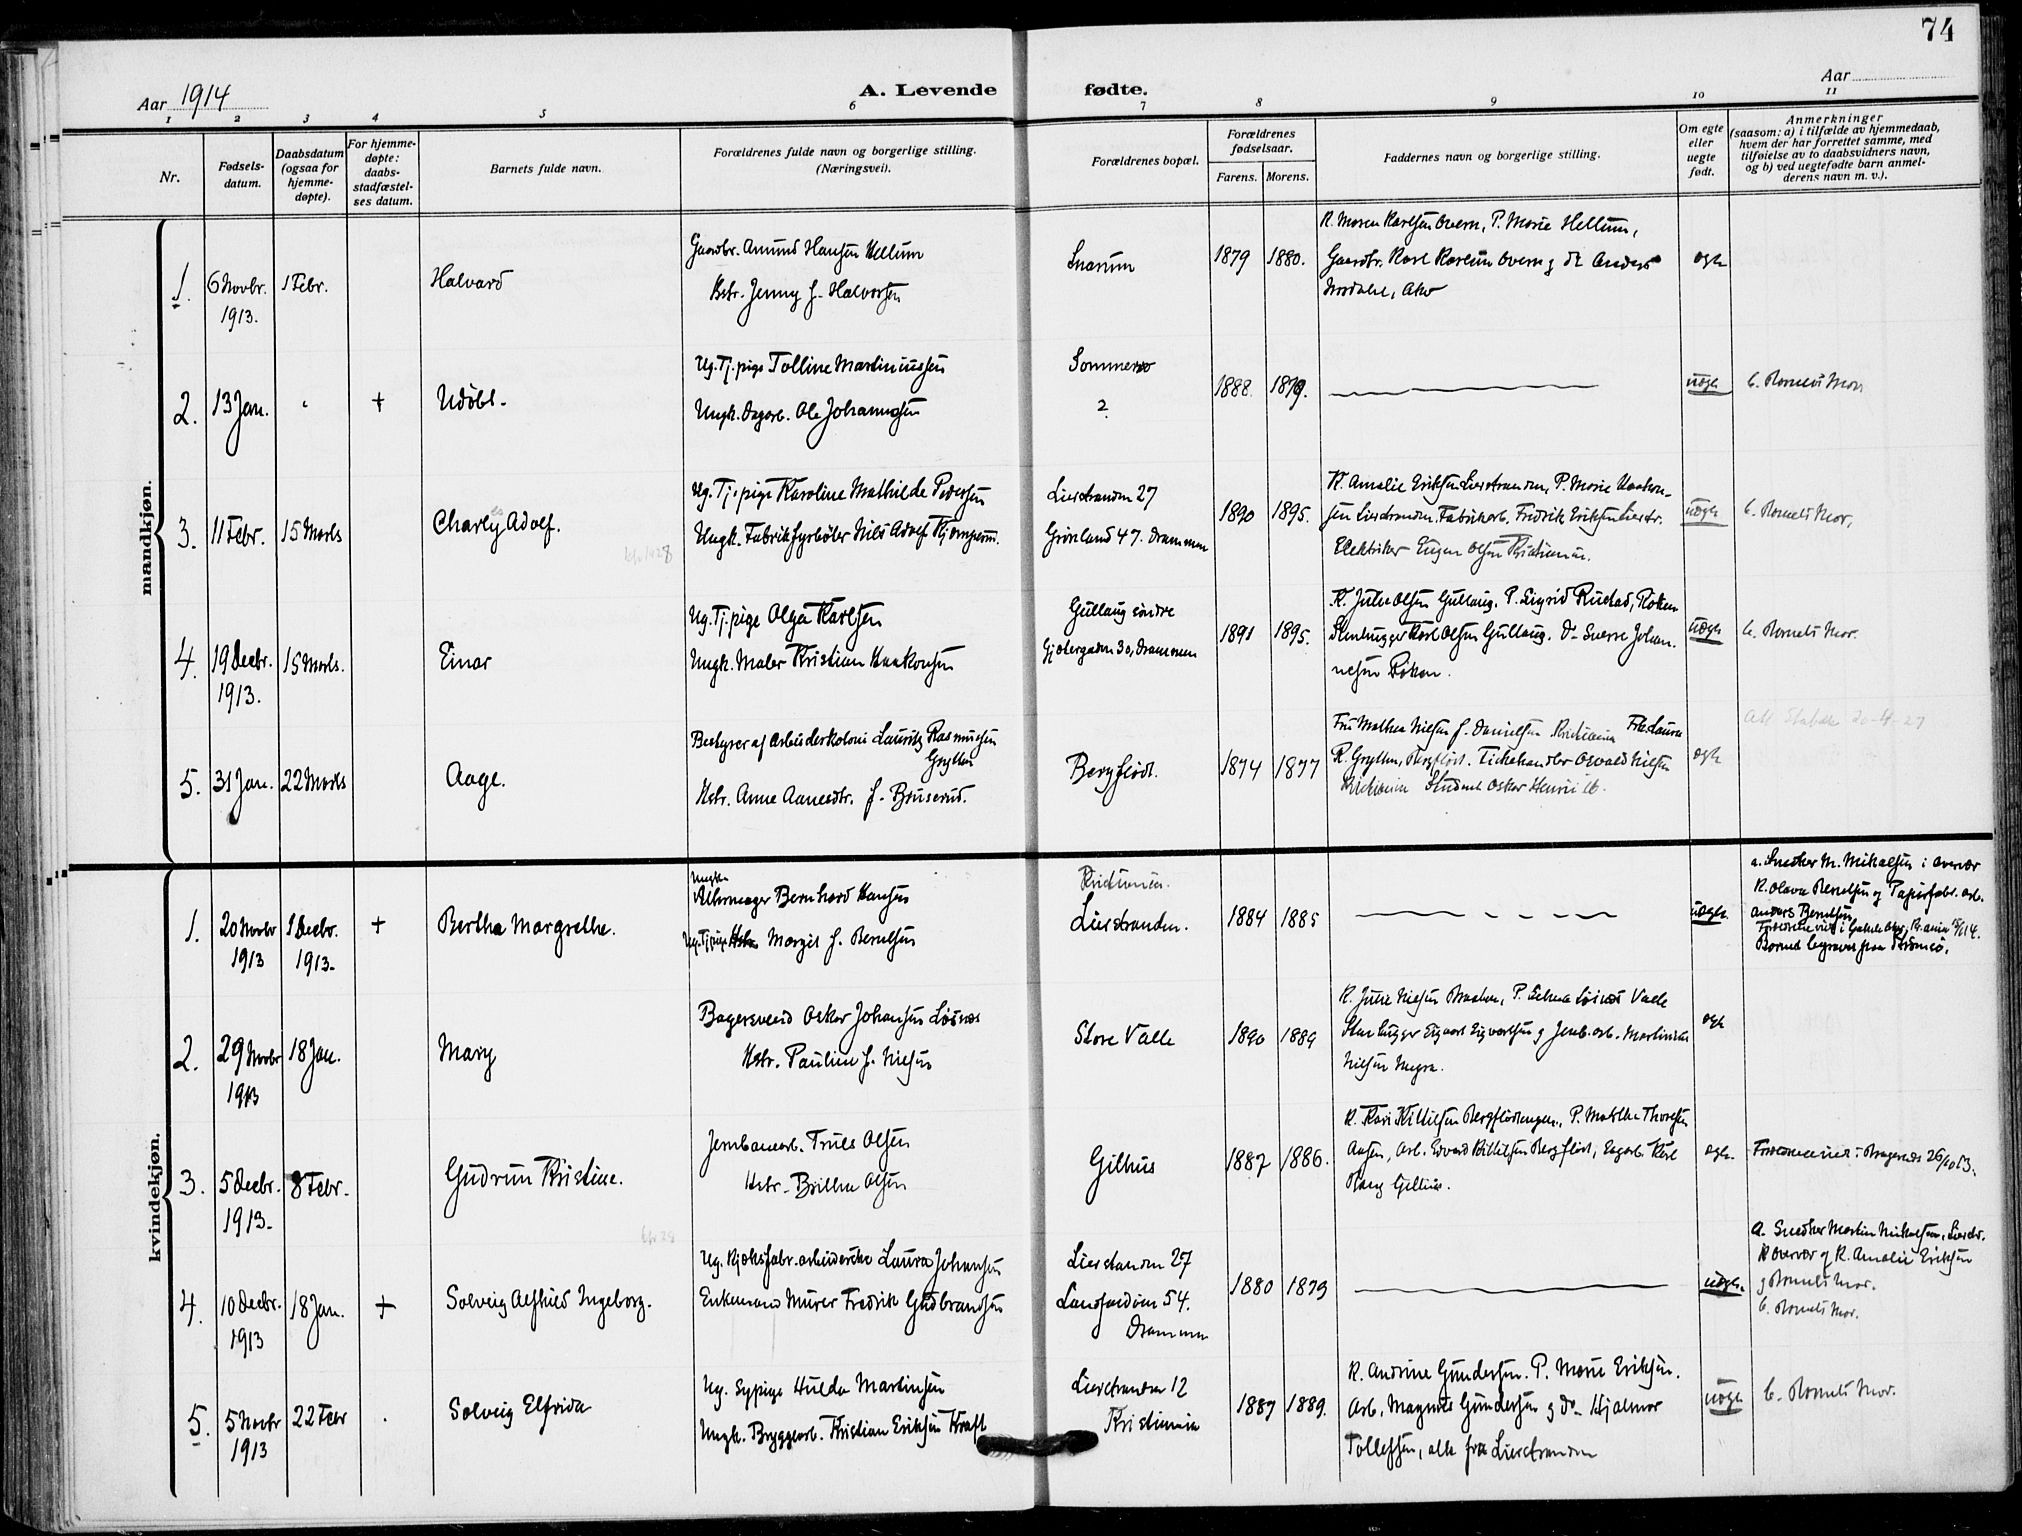 74
Aar 1914
A. Levende fødte.
Aar
1 2 3 4 5 6 7 8 9 10 11
Nr.
Fødsels-
datum.
Daabsdatum
(ogsaa for
hjemme-
døpte).
For hjemme-
døpte:
daabs-
stadfæstel-
ses datum.
Barnets fulde navn.
Forældrenes fulde navn og borgerlige stilling.
(Næringsvei).
Forældrenes bopæl.
Forældrenes
fødselsaar.
Farens. Morens.
Faddernes navn og borgerlige stilling.
Om egte
eller
uegte
født.
Anmerkninger
(saasom: a) i tilfælde av hjemmedaab,
hvem der har forrettet samme, med
tilføielse av to daabsvidners navn,
og b) ved uegtefødte barn anmel-
derens navn m. v.).
mandkjøn.
1.
6 Novbr.
1913.
1 Febr.
Halvard
Gaardbr. Amund Hansen Hellum
Hstr. Jenny f. Halvorsen
Snarum
1879 1880.
K. Maren Karlsen Overn, P. Marie Hellum,
Gaardbr. Karl Karlsen Overn g do Anders
egte
2.
13 Jan.
+
Udøbt.
Ug. Tj. pige Tolline Martiniussen
Ungk. Dagarb. Ole Johannessen
Sommerro
?
1888. 1879.
uegte
b. Barnets Mor
3.
11 Febr.
15 Marts
Charles Adolf.
Ug. Tj. pige Karoline Mathilde Pedersen
Ungk. Fabrikfyrbøter Nils Adolf
Lierstranden 27
Grønland 47. Drammen
1890 1895.
K. Amalie Eriksen Lierstranden, P. Marie Haakon-
sen Lierstranden. Fabrikarb. Fredrik Eriksen Lierstr.
Elektriker Eugen Olsen Kristiania.
uegte
b. Barnets Mor.
4.
19 Decbr.
1913.
15 Marts.
Einar
Ug. Tj. pige Olga Karlsen
Ungk. Maler Kristian Haakonsen
Gullaug søndre
Gjetergaden 30, Drammen
1891 1895.
K. Julie Olsen Gullaug. P. Sigrid Rustad, Røken
Stenhugger Karl Olsen Gullaug. do Sverre Johan-
nesen Røken.
uegte
b. Barnets Mor.
5.
31 Jan.
22 Marts
Aage.
Bestyrer af Arbeiderkoloni Lauritz Rasmussen
Hstr. Anne Aanesdtr. f. Bruserud.
Bergflødt.
1874 1877
Fru Mathea Nielsen f. Danielsen Kristiania Frk. Laura
egte
20-4-27
kvindekjøn.
1.
20 Novbr
1913
1 Decbr.
1913.
+
Bertha Margrethe.
Ungk.
Bernhard Hansen
Ug. Tj. pige Margit f. Berntsen
Kristiania.
Lierstranden.
1884 1885
uegte.
a. Snedker M. Mikalsen i overvær
K. Olava Berntsen og Papirfabr. arb.
Anders Berntsen.
Barnet begravet paa Strømsø.
2.
29 Novbr
1913
18 Jan.
Mary
Bagersvend Oskar Johansen Løsnæs
Hstr. Pauline f. Nielsen
Store Valle
1890 1889
egte
3.
5 Decbr.
1913.
8 Febr.
Gudrun Kristine.
Jernbanearb. Truls Olsen
Hstr. Brithe Olsen
Gilhus
1887 1886.
K. Kari Kittilsen Bergflødtengen, P. Mathea Thoresen
Aasen, Arb. Edvard Kittilsen Bergflødt, Sagarb. Karl
Gilhus.
egte.
Forældrene viet i Bragernes 26/10 13.
4.
10 Decbr.
1913
18 Jan.
+
Solveig Alfhild Ingeborg.
Ug. Kjæksfabr. arbeiderske Laura Johansen
Enkemand Murer Fredrik Gudbrandsen
Lierstranden 27
Landfaldøen 54.
Drammen
1880 1879
uegte.
a. Snedker Martin Mikalsen, Lierstr.
i overvær af K. Amalie Eriksen
g Barnets Mor.
b. Barnets Mor.
5.
5 Novbr
1913
22 Febr
Solveig Elfrida
Ug. Sypige Hulda Martinsen
Ungk. Bryggearb. Kristian Eriksen Kraft
Lierstranden 12
Kristiania
1887 1889.
K. Andrine Gundersen. P. Marie Eriksen.
Arb. Magnus Gundersen g do Hjalmar
Tollefsen, alle fra Lierstranden
uegte
b. Barnets Mor.